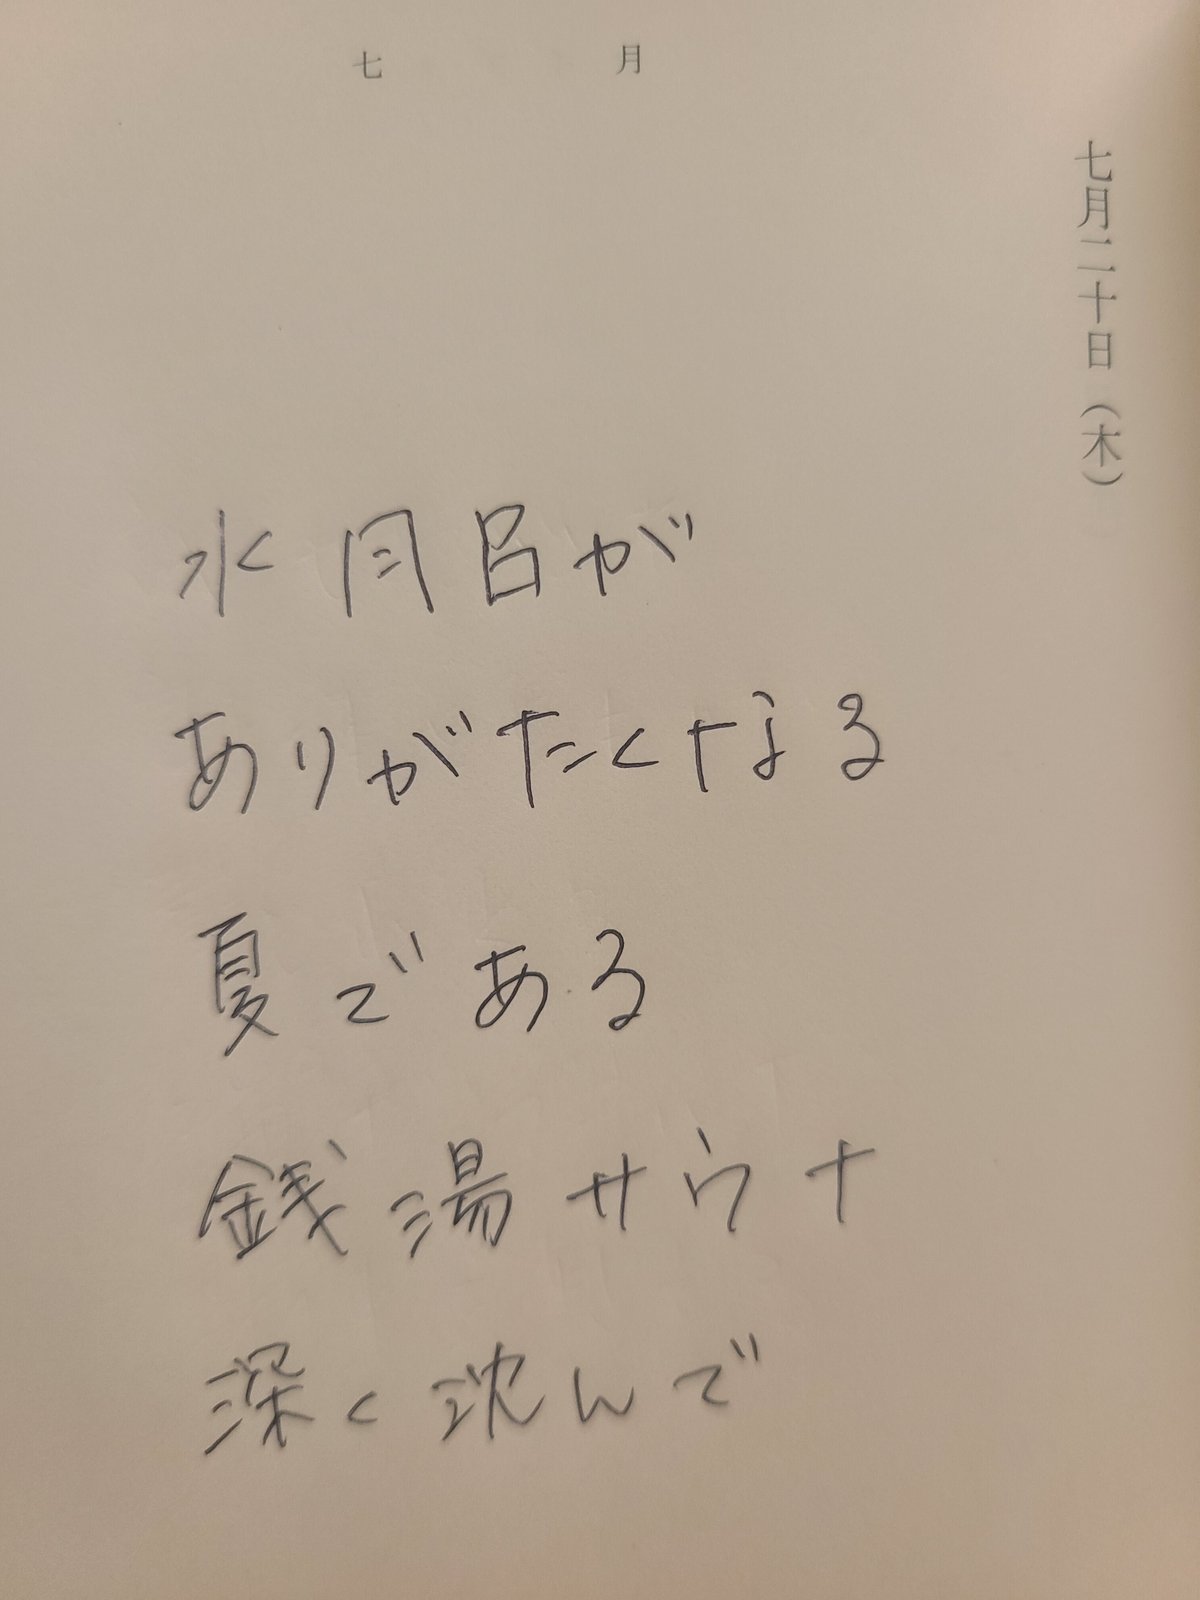 七月
七月二十日（木）
水風呂が
ありがたくなる
夏である
銭湯サウナ
深く沈んで